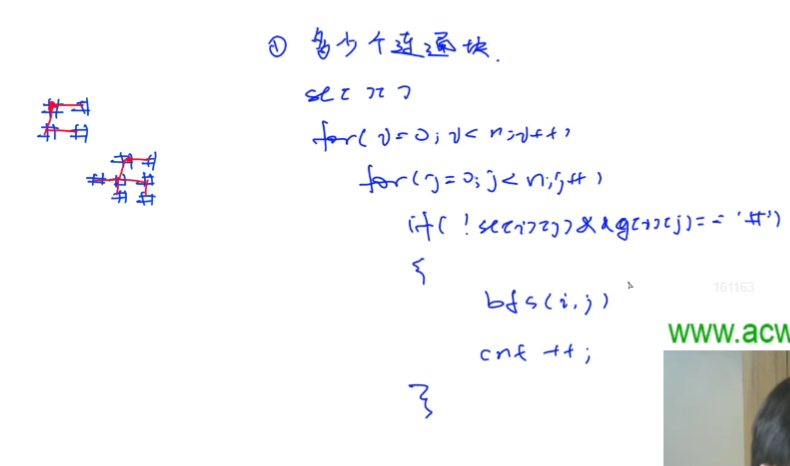 ① 多少个连通块.
st[][]
for(i=0;i<n;i++)
for(j=0;j<n;j++)
if(!st[i][j]&&g[i][j]=='#')
{
bfs(i,j)
cnt++;
}
# #
# #
# #
# # #
# #
161163
www.acw